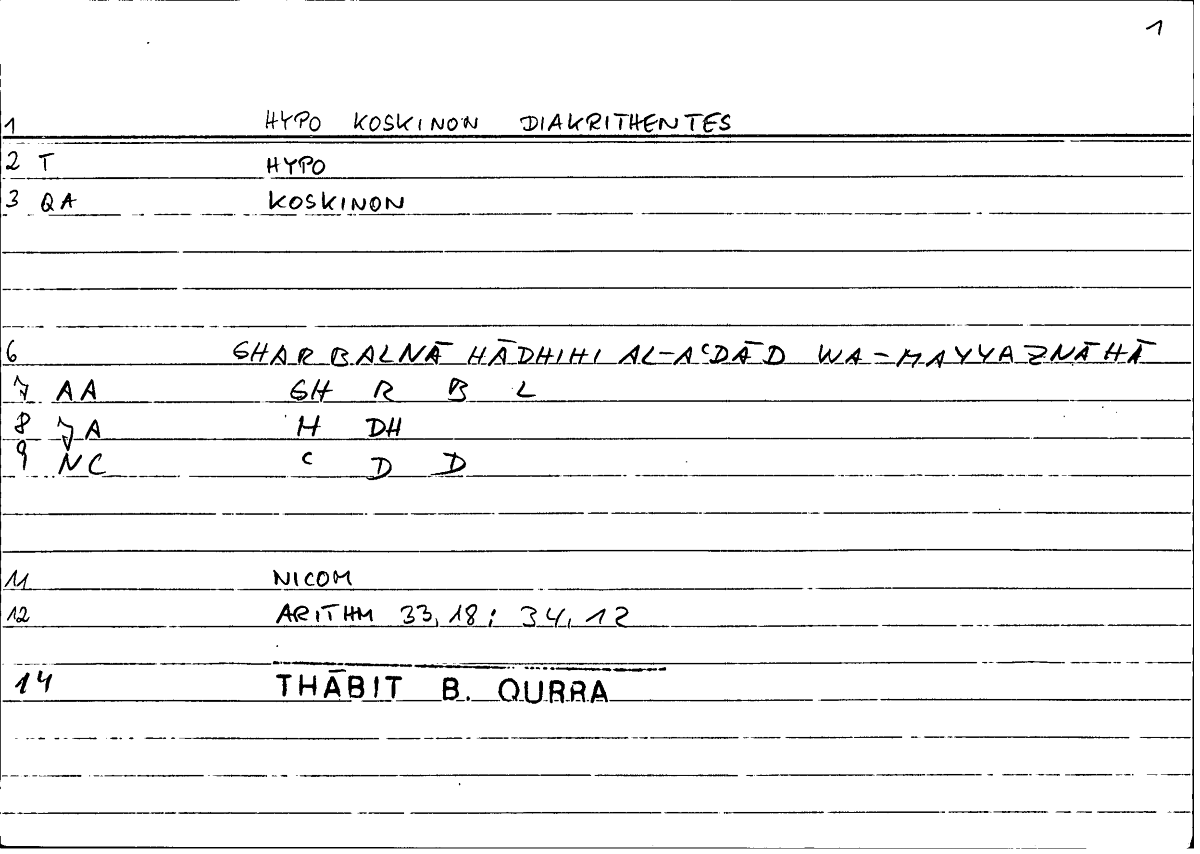 1
1 HYPO KOSKINON DIAKRITHENTES
2 T HYPO
3 QA KOSKINON
6 GHARBALNĀ HĀDHIHI AL-AʿDĀD WA-MAYYAZNĀHĀ
7 AA GH R B L
8 JA H DH
9 NC ʿ D D
11 NICOM
12 ARITHM 33,18; 34,12
14 THĀBIT B. QURRA